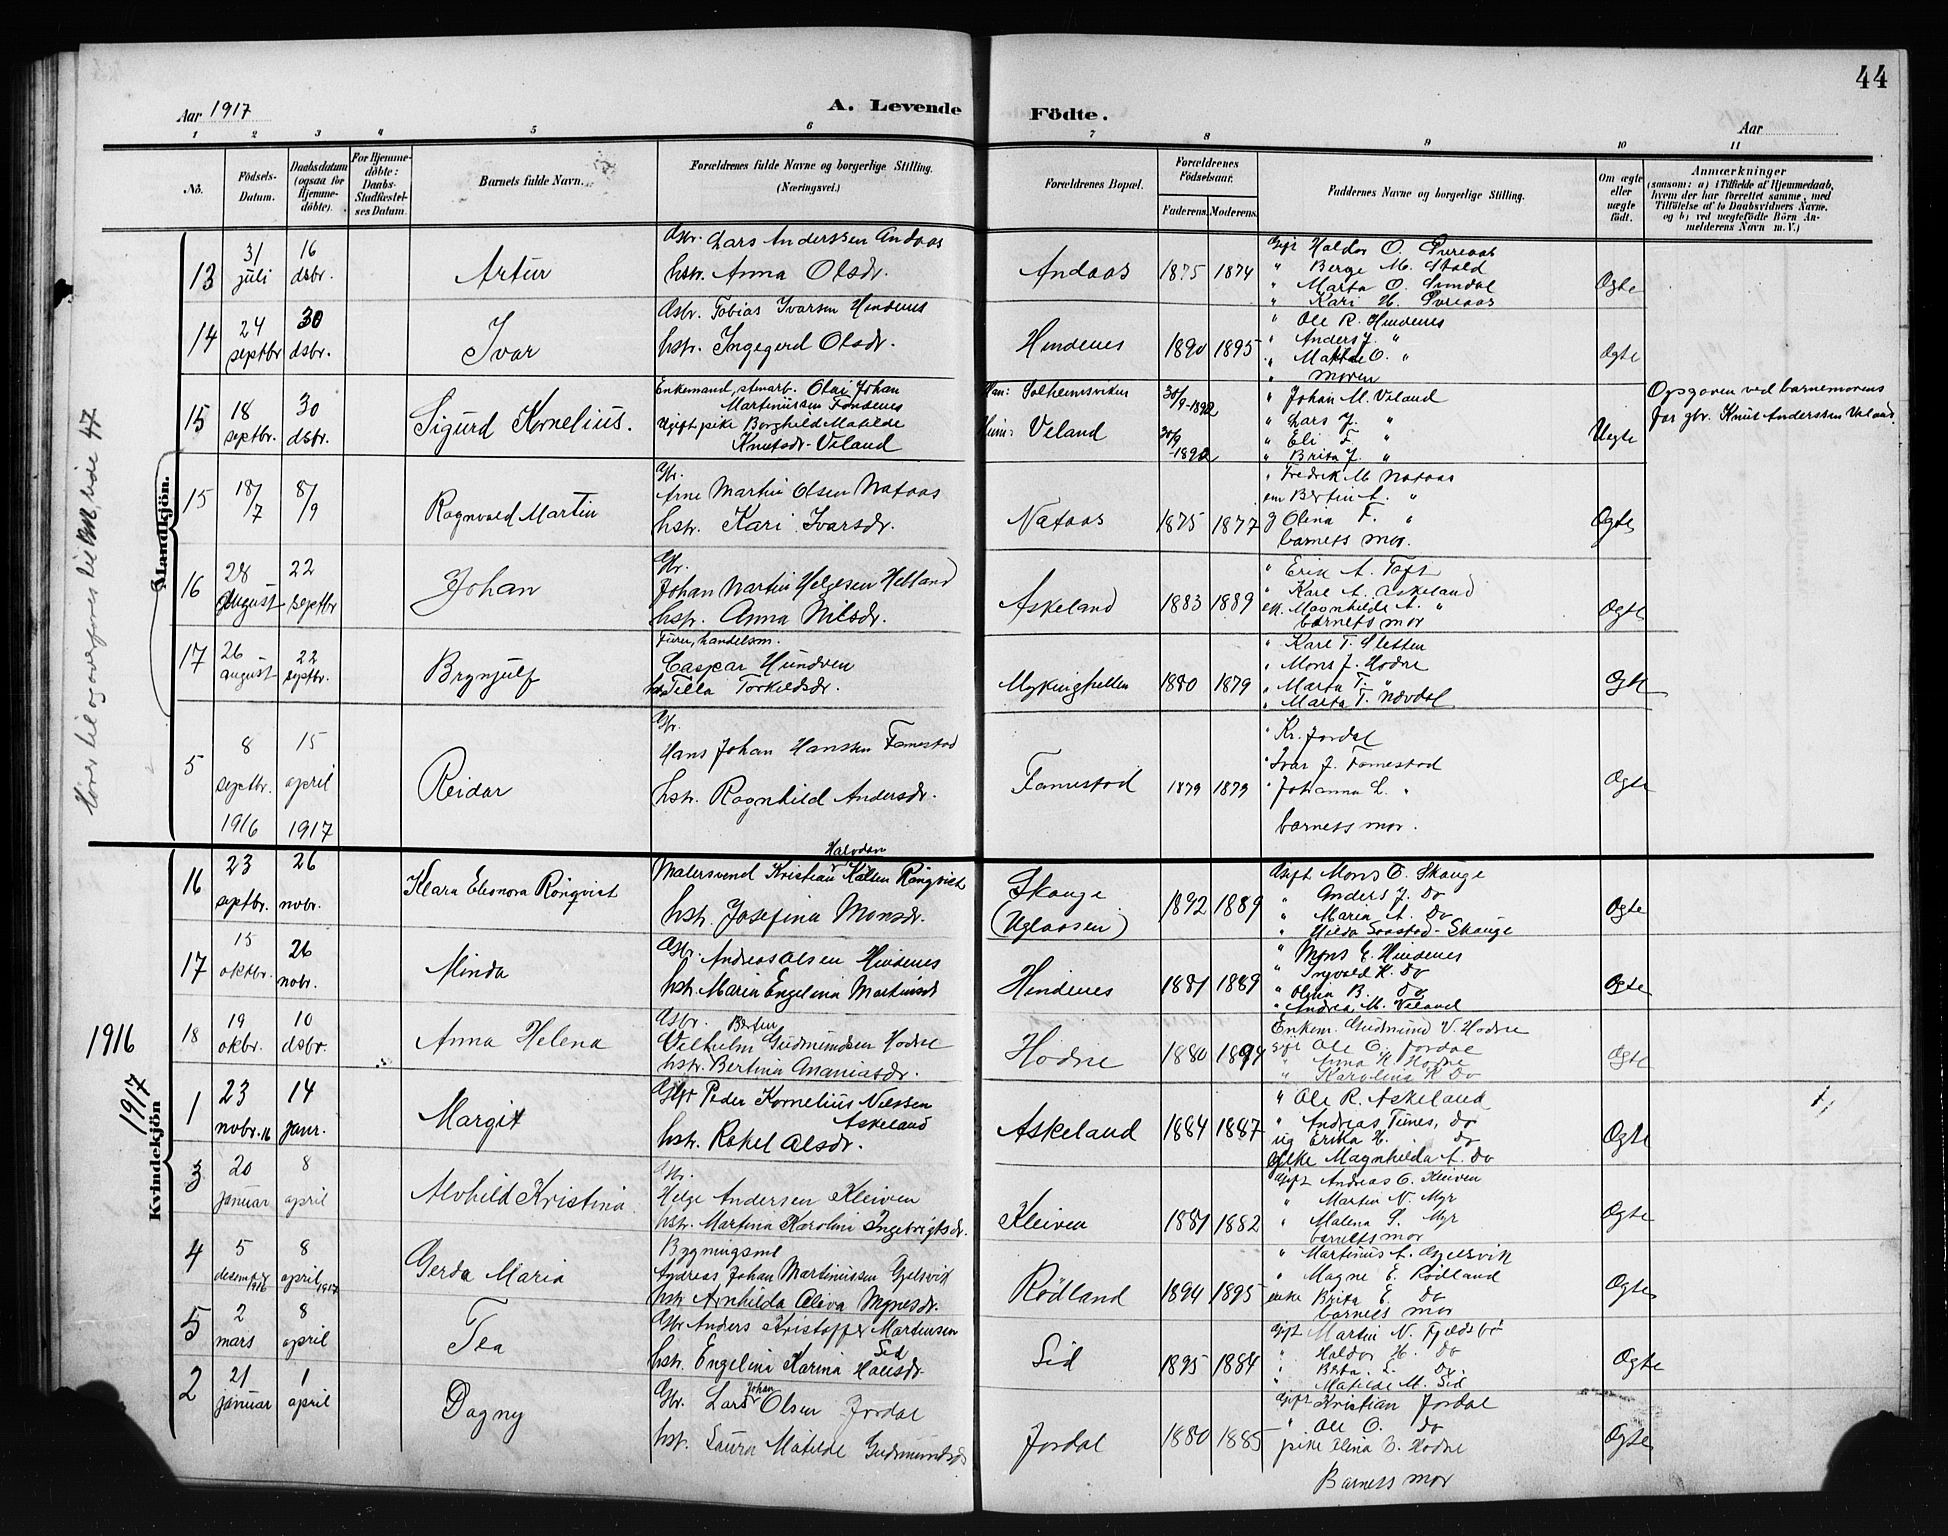 44
Aar 1917
A. Levende Födte.
Aar
1 2 3 4 5 6 7 8 9 10 11
No.
Födsels-Datum.
Daabsdatum (ogsaa for Hjemme-döbte).
For Hjemme-döbte: Daabs-Stadfæstel-ses Datum.
Barnets fulde Navn.
Forældrenes fulde Navne og borgerlige Stilling. (Næringsvei.)
Forældrenes Bopæl.
Forældrenes Födselsaar.
Faderens. Moderens.
Faddernes Navne og borgerlige Stilling.
Om ægte eller uægte födt.
Anmærkninger
(saasom: a) i Tilfælde af Hjemmedaab,
hvem der har forrettet samme, med
Tilföielse af to Daabsvidners Navne.
og b) ved uægtefödte Börn An-
melderens Navn m. V.)
Mandkjön.
13
31 juli
16 dsbr.
Artur
Gbr. Lars Anderssen Andaas
hstr. Anna Olsdr.
Andaas
1875 1874
Gift Haldor O. Pureaas
" Berge M. Stald
" Marta O.
" Kari H. Pureaas
Ægte
14
24 septbr
30 dsbr.
Ivar
Gbr. Tobias Ivarsen Hindenes
hstr. Ingegerd Olsdr.
Hindenes
1890 1895
" Ole R. Hindenes
" Anders J. "
" O. "
" Moren
Ægte
15
18 septbr.
30 dsbr.
Sigurd Kornelius.
Enkemand, stenarb. Olai Johan
Martinussen Fondenes
Ugift pike Borghild Matilde
Knutsdr. Veland
Han: Solheimsviken
Hun: Veland
30/9-1892
30/9-1892
" Johan M. Veland
" Lars J. "
" Eli F. "
" Brita J. "
Uegte
Opgaven ved barnemorens
far gbr. Knut Anderssen Veland.
15
18/7
8/9
Ragnvald Martin
Gbr.
Arne Martin Olsen Nataas
hstr. Kari Ivarsdr.
Nataas
1875 1877
" Fredrik M. Nataas
em Bertin A. "
g Olina F. "
barnets mor.
Ægte
16
28 august
22 septbr
Johan
Gbr.
Johan Martin Helgesen Helland
hstr. Anna Nilsdr.
Askeland
1883 1889
" Erik A. Toft
" Karl A. Askeland
Magnhilda A. "
barnets mor
Ægte
17
26 august
22 septbr.
Brynjulf
Furer, handelsm.
Caspar Hundven
hstr Tella Torkildsdr.
Mykingfellen
1880 1879
" Karl T. Sletten
" Mons J. Hodne
" Marta T. "
" Marta T. Nævdal
Ægte
5
8 septbr. 1916
15 april 1917
Reidar
Gbr.
Hans Johan Hanssen Famestad
hstr. Ragnhild Andersdr.
Famestad
1879 1879
" Kr. Jordal
" Ivar J. Famestad
" Johanna L. "
barnets mor.
Ægte
Kvindekjön
16
23 septbr.
26 nobr.
Klara Elionora Rönqvist
Halvdan
Malersvend Kristian Kalsen Rönqvist
hstr. Josefina Monsdr.
Skauge (Uglaasen)
1892 1889
Gift Mons O. Skauge
" Anders J. Do
" Maria A. Do
" Hilda Saastad-Skauge
Ægte
17
15 oktbr.
26 nobr.
Minda
Gbr. Andreas Olsen Hindenes
hstr. Maria Engelina Martinsdr
Hindenes
1881 1889
" Mons E. Hindenes
" Ingvald K. Do
" Olina B. Do
" Andrea M. Veland
Ægte
1916
18
19 okbr.
10 dsbr.
Anna Helena
Gbr. Bertin
Vilhelm Gudmundsen Hodne
hstr. Bertina Ananiasdr.
Hodne
1880 1894
Enkem. Gudmund V. Hodne
gift Ole O. Jordal
" Anna H. Hodne
" Karolina K. Do
Ægte
1917
1
23 nobr. 16
14 janr.
Margit
Gbr Peder Kornelius Nilssen
Askeland
hstr. Rakel Olsdr.
Askeland
1884 1887
" Ole R. Askeland
" Andreas Tunes, Do
ug Erika H. Do
pike Magnhilda A. Do
Ægte
3
20 januar
8 april
Alvhild Kristina
Gbr.
Helge Andersen Kleiven
hstr. Martina Karolini Ingebrigtsdr.
Kleiven
1881 1882
Gift Andreas O. Kleiven
" Martin N. Myr
" Malena S. Myr
barnets mor
Ægte
4
5 desember 1916
8 april 1917
Gerda Maria
Bygningssml
Andreas Johan Martinussen Gjelsvik
hstr Arnhilda Oliva Mgnesdr.
Rödland
1894 1895
" Martinus A. Gjelsvik
" Magne E. Rödland
enke Brita E. Do
barnets mor
Ægte
5
2 mars
8 april
Tea
Gbr Anders Kristoffer Martinsen
Sid
hstr. Engelina Karina Hansdr.
Sid
1895 1884
Gift Martin N. Fjeldsbø
" Haldor H. Do
" Berta L. Do
" Matilde M. Sid
Ægte
2
21 januar
1 april
Dagny
Gbr. Lars Johan Olsen Jordal
hstr. Laura Matilde Gudmundsdr
Jordal
1880 1885
Gift Kristian Jordal
" Ole O. Do
pike Elina O. Hodne
Barnets mor
Ægte